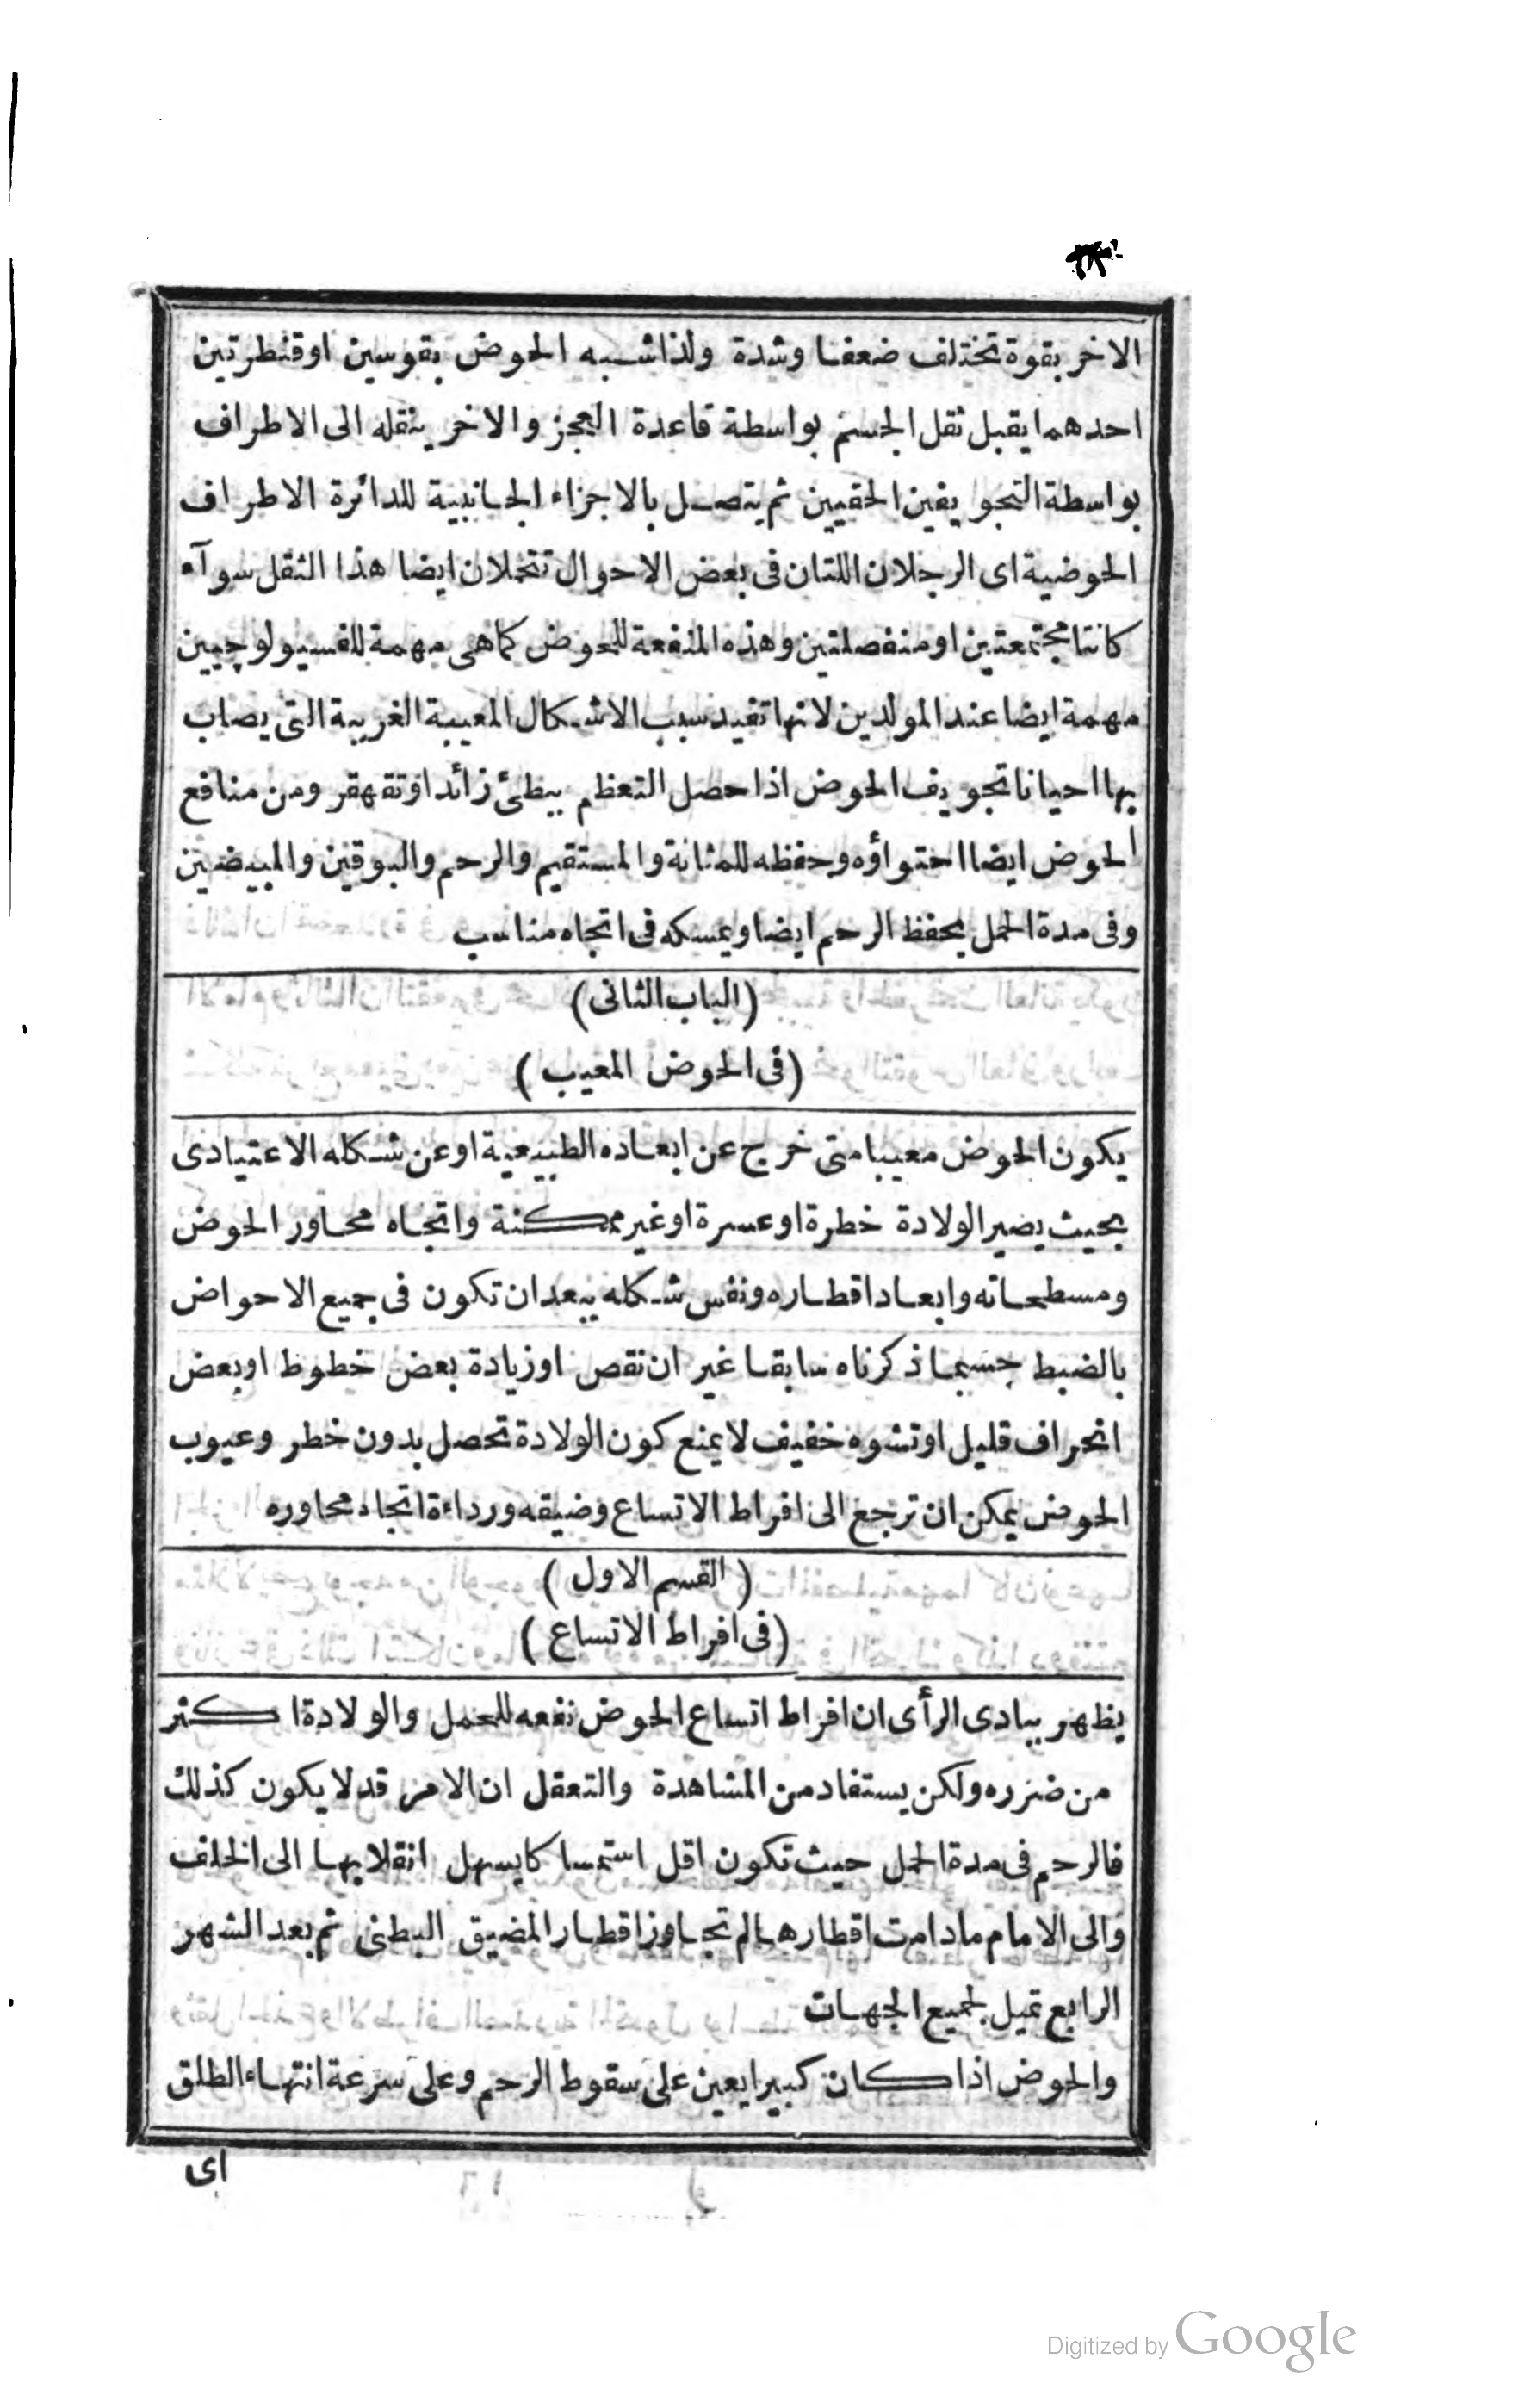 الاخر بقوة تختلف ضعفا وشدة ولذا شبه الحوض بقوسين او قنطرتين
احدهما يقبل ثقل الجسم بواسطة قاعدة العجز والاخر ينقله الى الاطراف
بواسطة التجويفين الحقيين ثم يتصل بالاجزاء الجانبية للدائرة الاطراف
الحوضية اى الرجلان اللتان فى بعض الاحوال تتحملان ايضا هذا الثقل سوآء
كانتا مجتمعتين او منفصلتين وهذه المنفعة للحوض كما هى مهمة للفسيولوجيين
مهمة ايضا عند المولدين لانها تفيد سبب الاشكال المعيبة الغريبة التى يصاب
بها احيانا تجويف الحوض اذا حصل التعظم ببطئ زائد او تقهقر ومن منافع
الحوض ايضا احتواؤه وحفظه للمثانة والمستقيم والرحم والبوقين والمبيضين
وفى مدة الحمل يحفظ الرحم ايضا ويمسكه فى اتجاه مناسب
(الباب الثانى)
(فى الحوض المعيب)
يكون الحوض معيبا متى خرج عن ابعاده الطبيعية او عن شكله الاعتيادى
بحيث يصير الولادة خطرة او عسرة او غير ممكنة واتجاه محاور الحوض
ومسطحاته وابعاد اقطاره ونفس شكله يبعد ان تكون فى جميع الاحواض
بالضبط حسبما ذكرناه سابقا غير ان نقص او زيادة بعض خطوط او بعض
انحراف قليل او تشوه خفيف لا يمنع كون الولادة تحصل بدون خطر وعيوب
الحوض يمكن ان ترجع الى افراط الاتساع وضيقه ورداءة اتجاه محاوره
(القسم الاول)
(فى افراط الاتساع)
يظهر ببادى الرأى ان افراط اتساع الحوض نفعه للحمل والولادة اكثر
من ضرره ولكن يستفاد من المشاهدة والتعقل ان الامر قد لا يكون كذلك
فالرحم فى مدة الحمل حيث تكون اقل استمساكا يسهل انقلابها الى الخلف
والى الامام ما دامت اقطارها لم تجاوز اقطار المضيق البطنى ثم بعد الشهر
الرابع تميل لجميع الجهات
والحوض اذا كان كبيرا يعين على سقوط الرحم وعلى سرعة انتهاء الطلق
اى
Digitized by Google